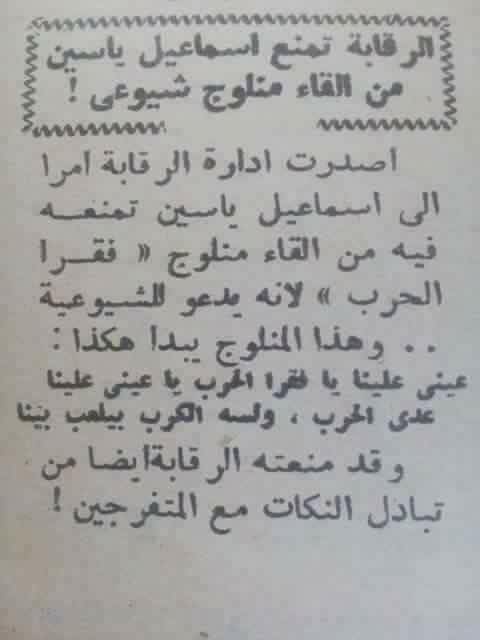 الرقابة تمنع اسماعيل ياسين
من القاء منلوج شيوعى !
اصدرت ادارة الرقابة امرا
الى اسماعيل ياسين تمنعـــه
فيه من القاء منلوج « فقـــرا
الحرب » لانه يدعو للشـيوعية
. . وهذا المنلوج يبدا هكذا :
عينى علينا يا فقرا الحرب يا عينى علينا
عدى الحرب ، ولسه الكرب بيلعب بينا
وقد منعته الرقابة ايضا من
تبادل النكات مع المتفرجين !